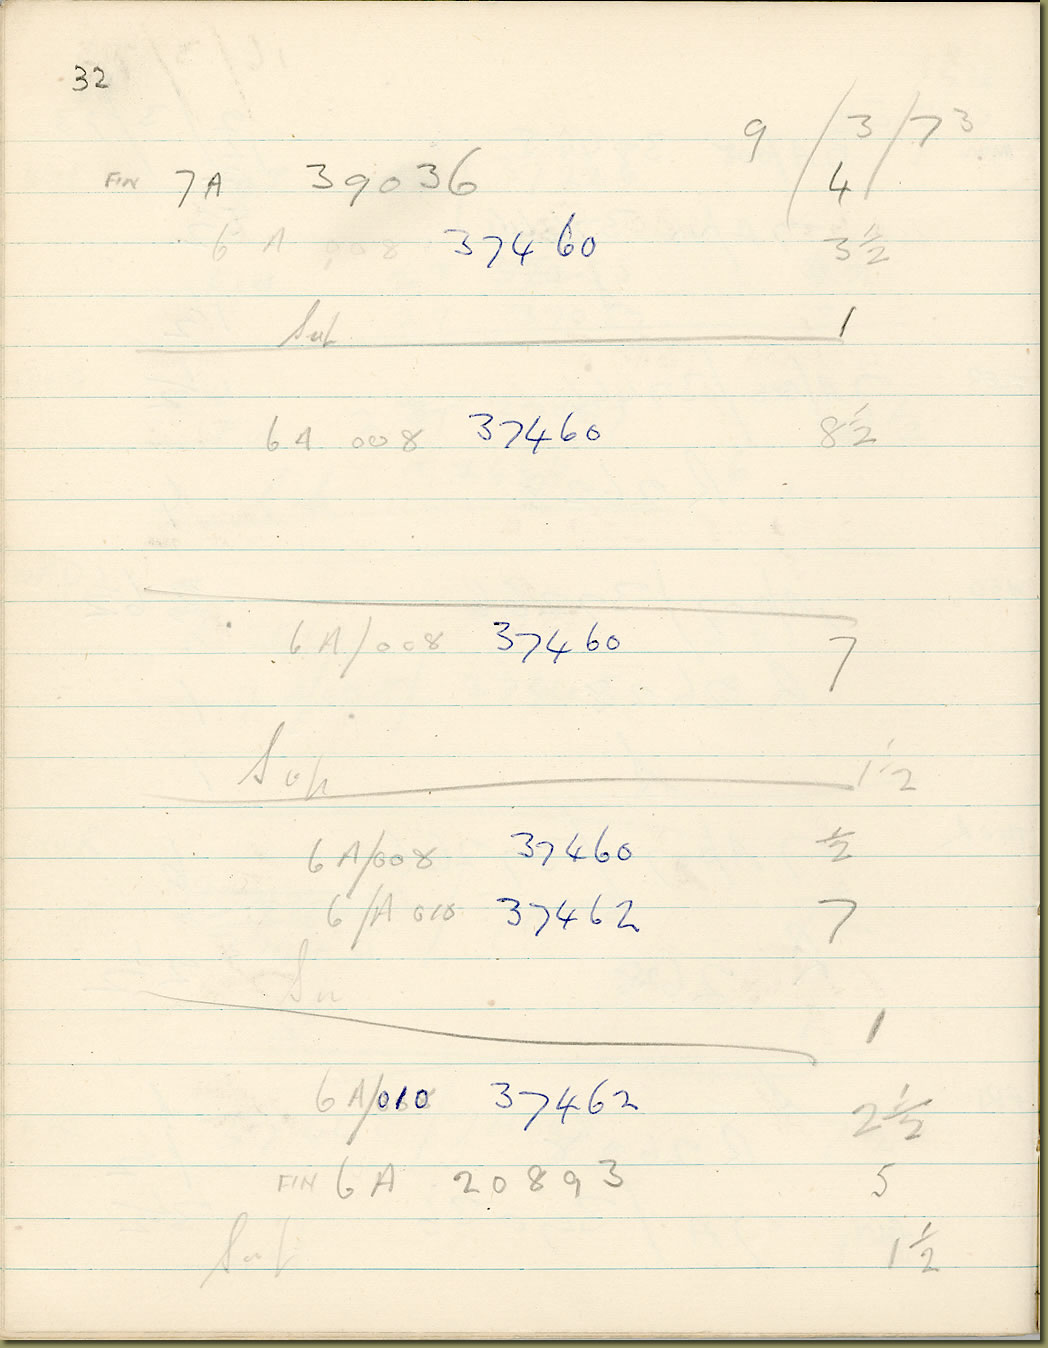 32
9/3/73
FIN 7A 39036 4
6 A 008 37460 3½
Sup 1
6A 008 37460 8½
6A/008 37460 7
Sup 1½
6A/008 37460 ½
6/A 010 37462 7
Su 1
6A/010 37462 2½
FIN 6A 20893 5
Sup 1½